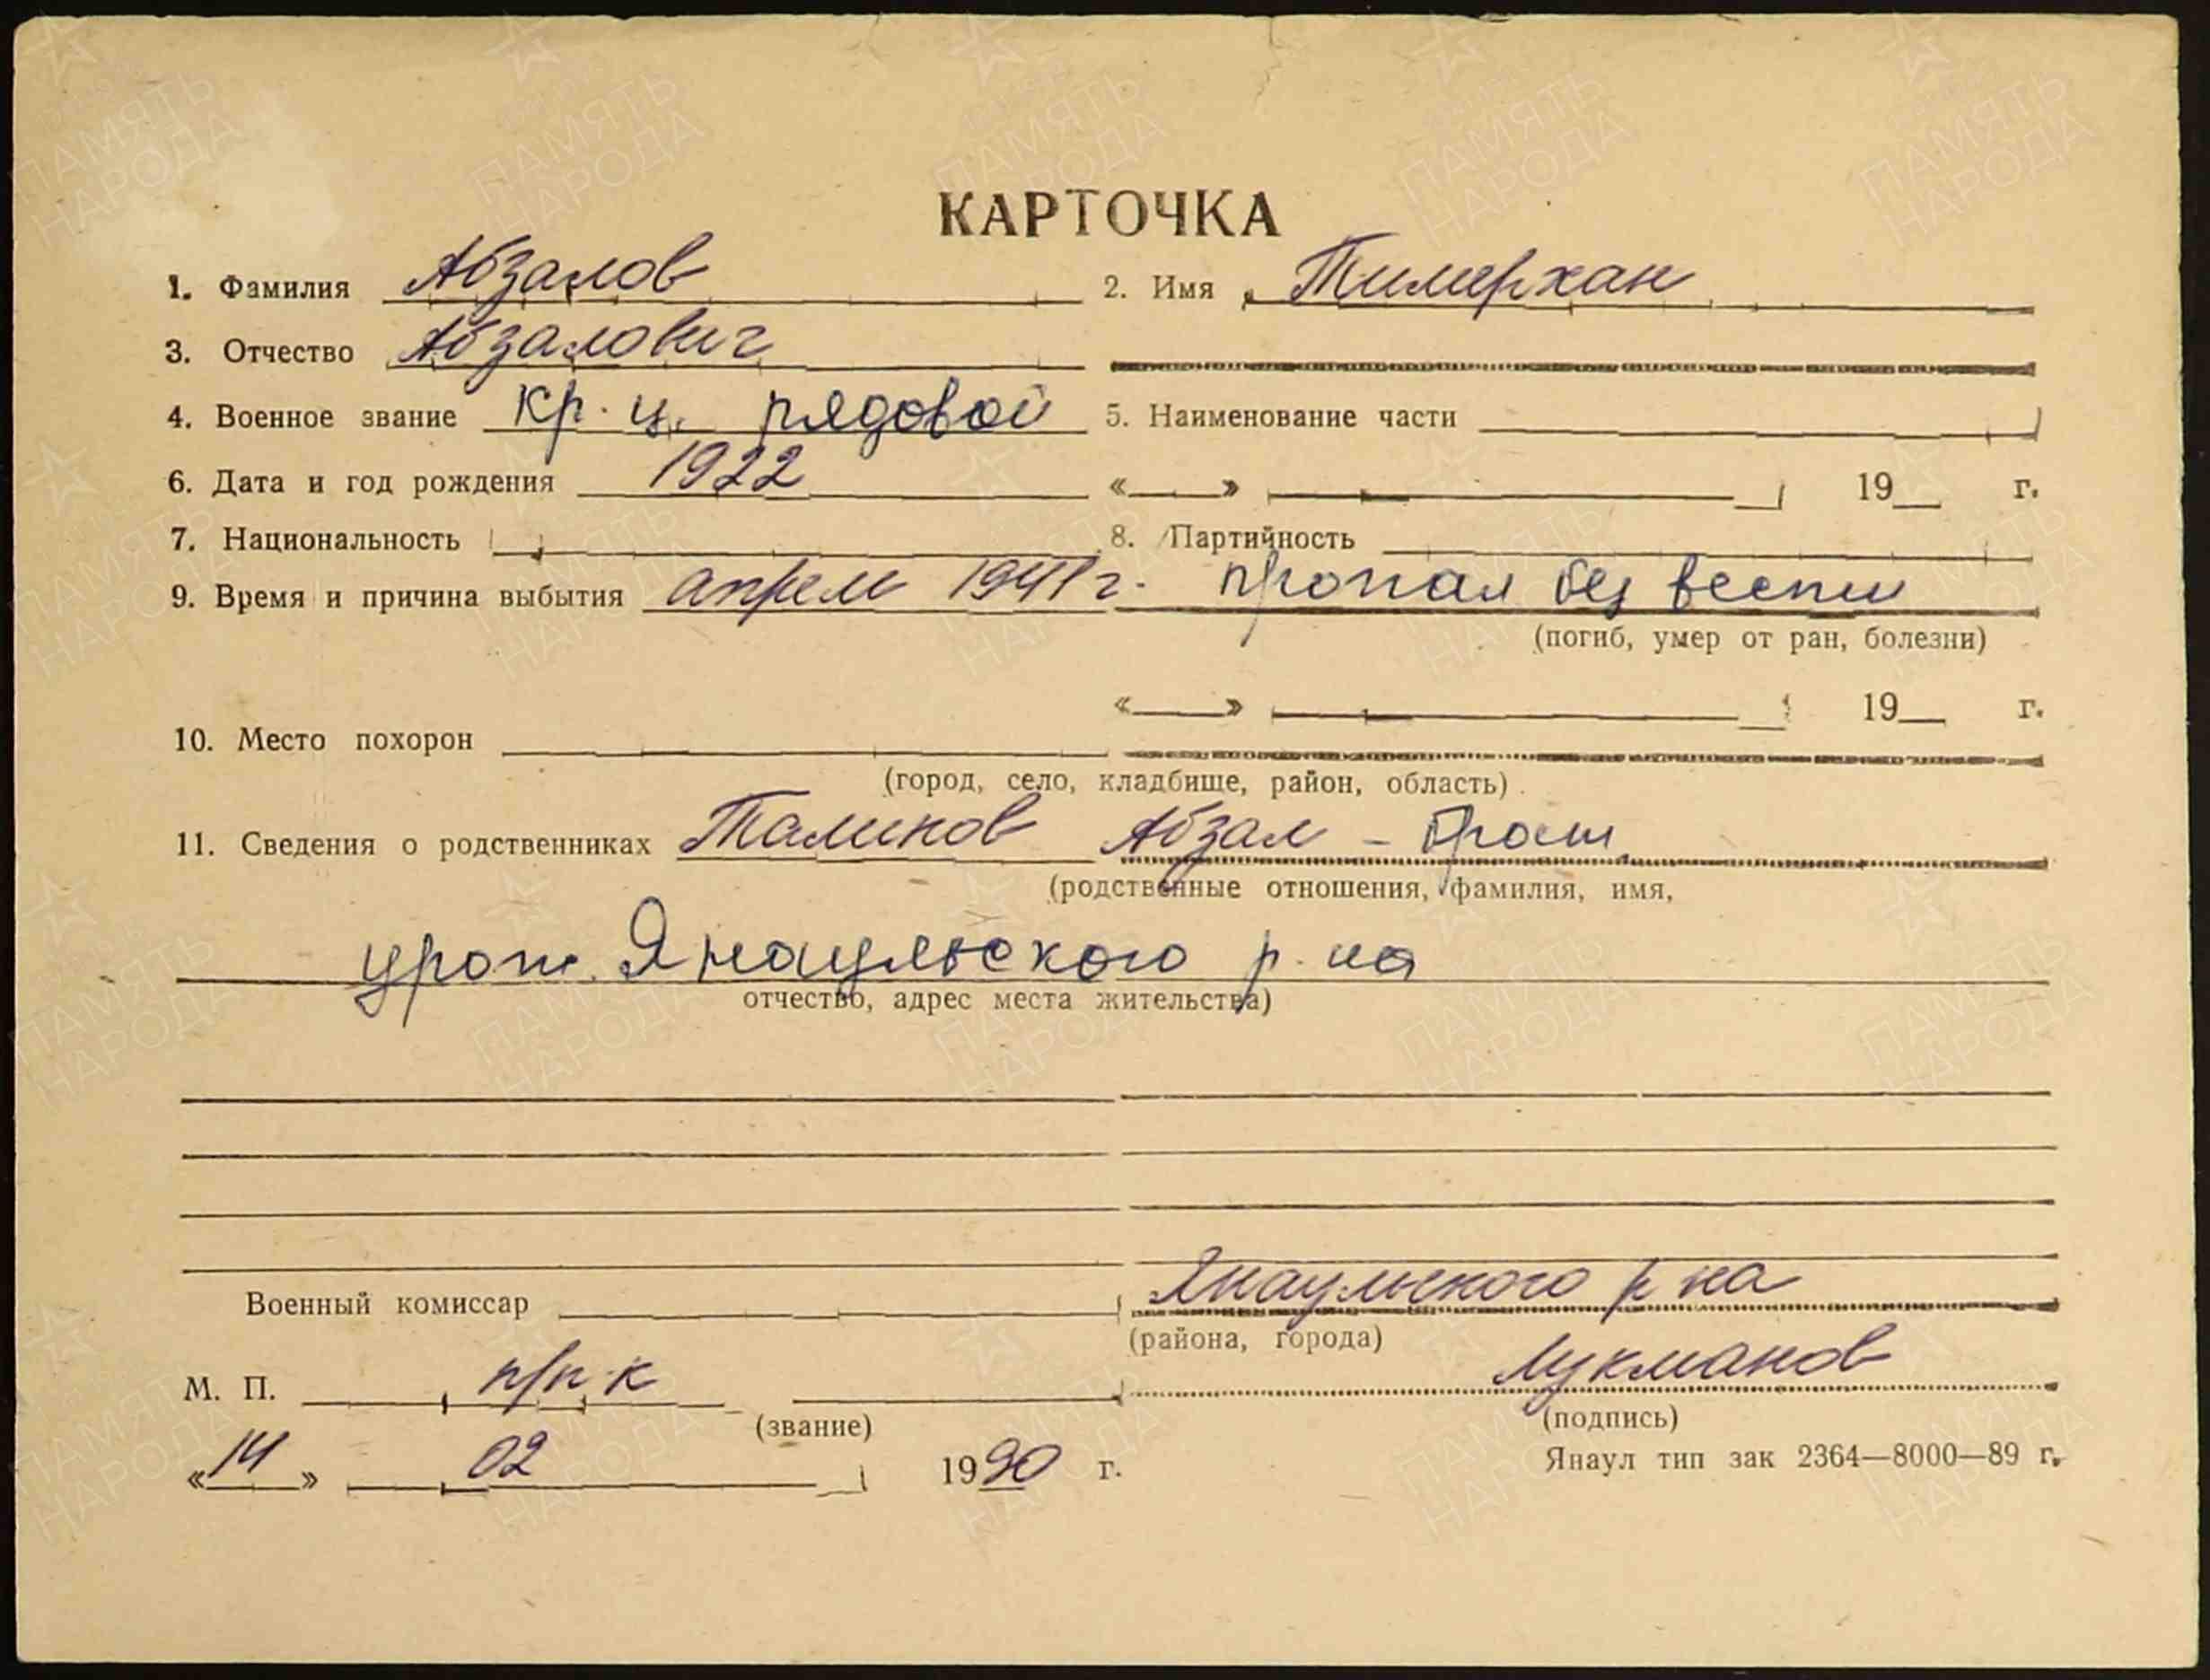 КАРТОЧКА
1. Фамилия Абзалов 2. Имя Тимерхан
3. Отчество Абзалович
4. Военное звание кр-ц. рядовой 5. Наименование части
6. Дата и год рождения 1922 « » 19 г.
7. Национальность 8. Партийность
9. Время и причина выбытия апрель 1941 г. пропал без вести
(погиб, умер от ран, болезни)
« » 19 г.
10. Место похорон
(город, село, кладбище, район, область).
11. Сведения о родственниках Талипов Абзал - брат
(родственные отношения, фамилия, имя,
урож. Янаульского р-на
отчество, адрес места жительства)
Военный комиссар Янаульского р-на
(района, города)
М. П. п/п-к Лукманов
(звание) (подпись)
«14» 02 1990 г. Янаул тип зак 2364—8000—89 г.
ПАМЯТЬ НАРОДА